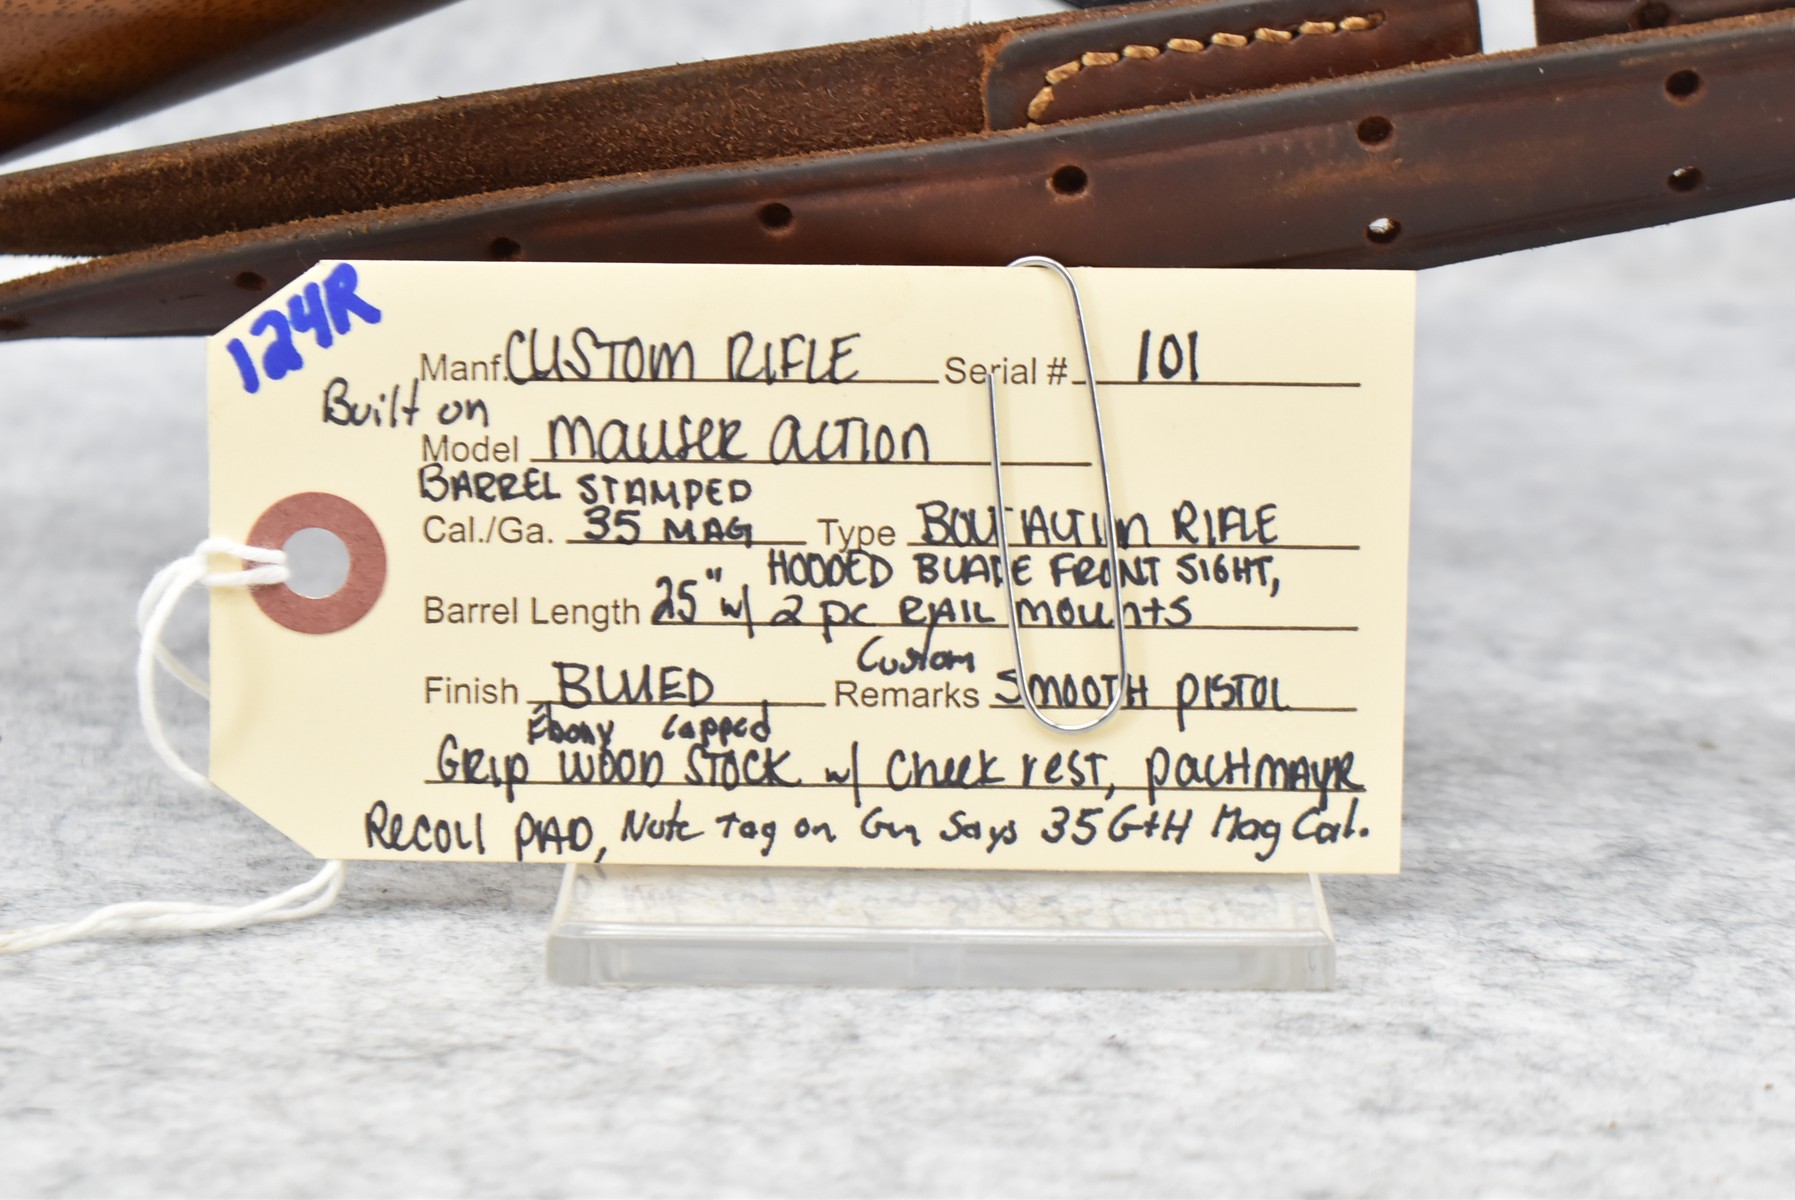 124R
Manf. CUSTOM RIFLE Serial # 101
Built on
Model Mauser Action
BARREL STAMPED
Cal./Ga. 35 MAG Type BOLT ACTION RIFLE
HOODED BLADE FRONT SIGHT,
Barrel Length 25" w/ 2 pc RAIL mounts
Custom
Finish BLUED Remarks SMOOTH PISTOL
Ebony Capped
GRIP WOOD STOCK w/ Cheek rest, PACHMAYR
RECOIL PAD, Note Tag on Gun Says 35 G+H Mag Cal.